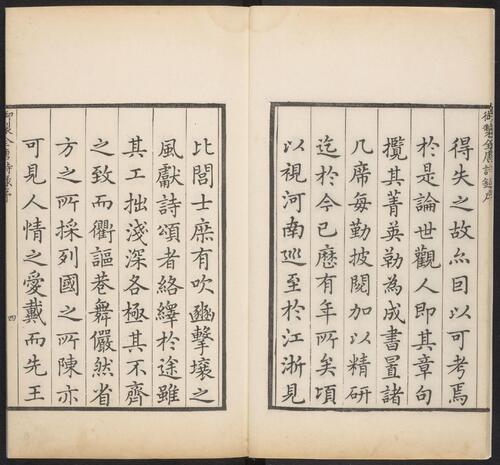 御製全唐詩錄序
得失之故亦因以可考焉
於是論世觀人即其章句
攬其菁英勒為成書置諸
几席每勤披閱加以精研
迄於今已歷有年所矣頃
以視河南巡至於江浙見
比閭士庶有吹豳擊壤之
風獻詩頌者絡繹於途雖
其工拙淺深各極其不齊
之致而衢謳巷舞儼然省
方之所採列國之所陳亦
可見人情之愛戴而先王
御製全唐詩錄序
四